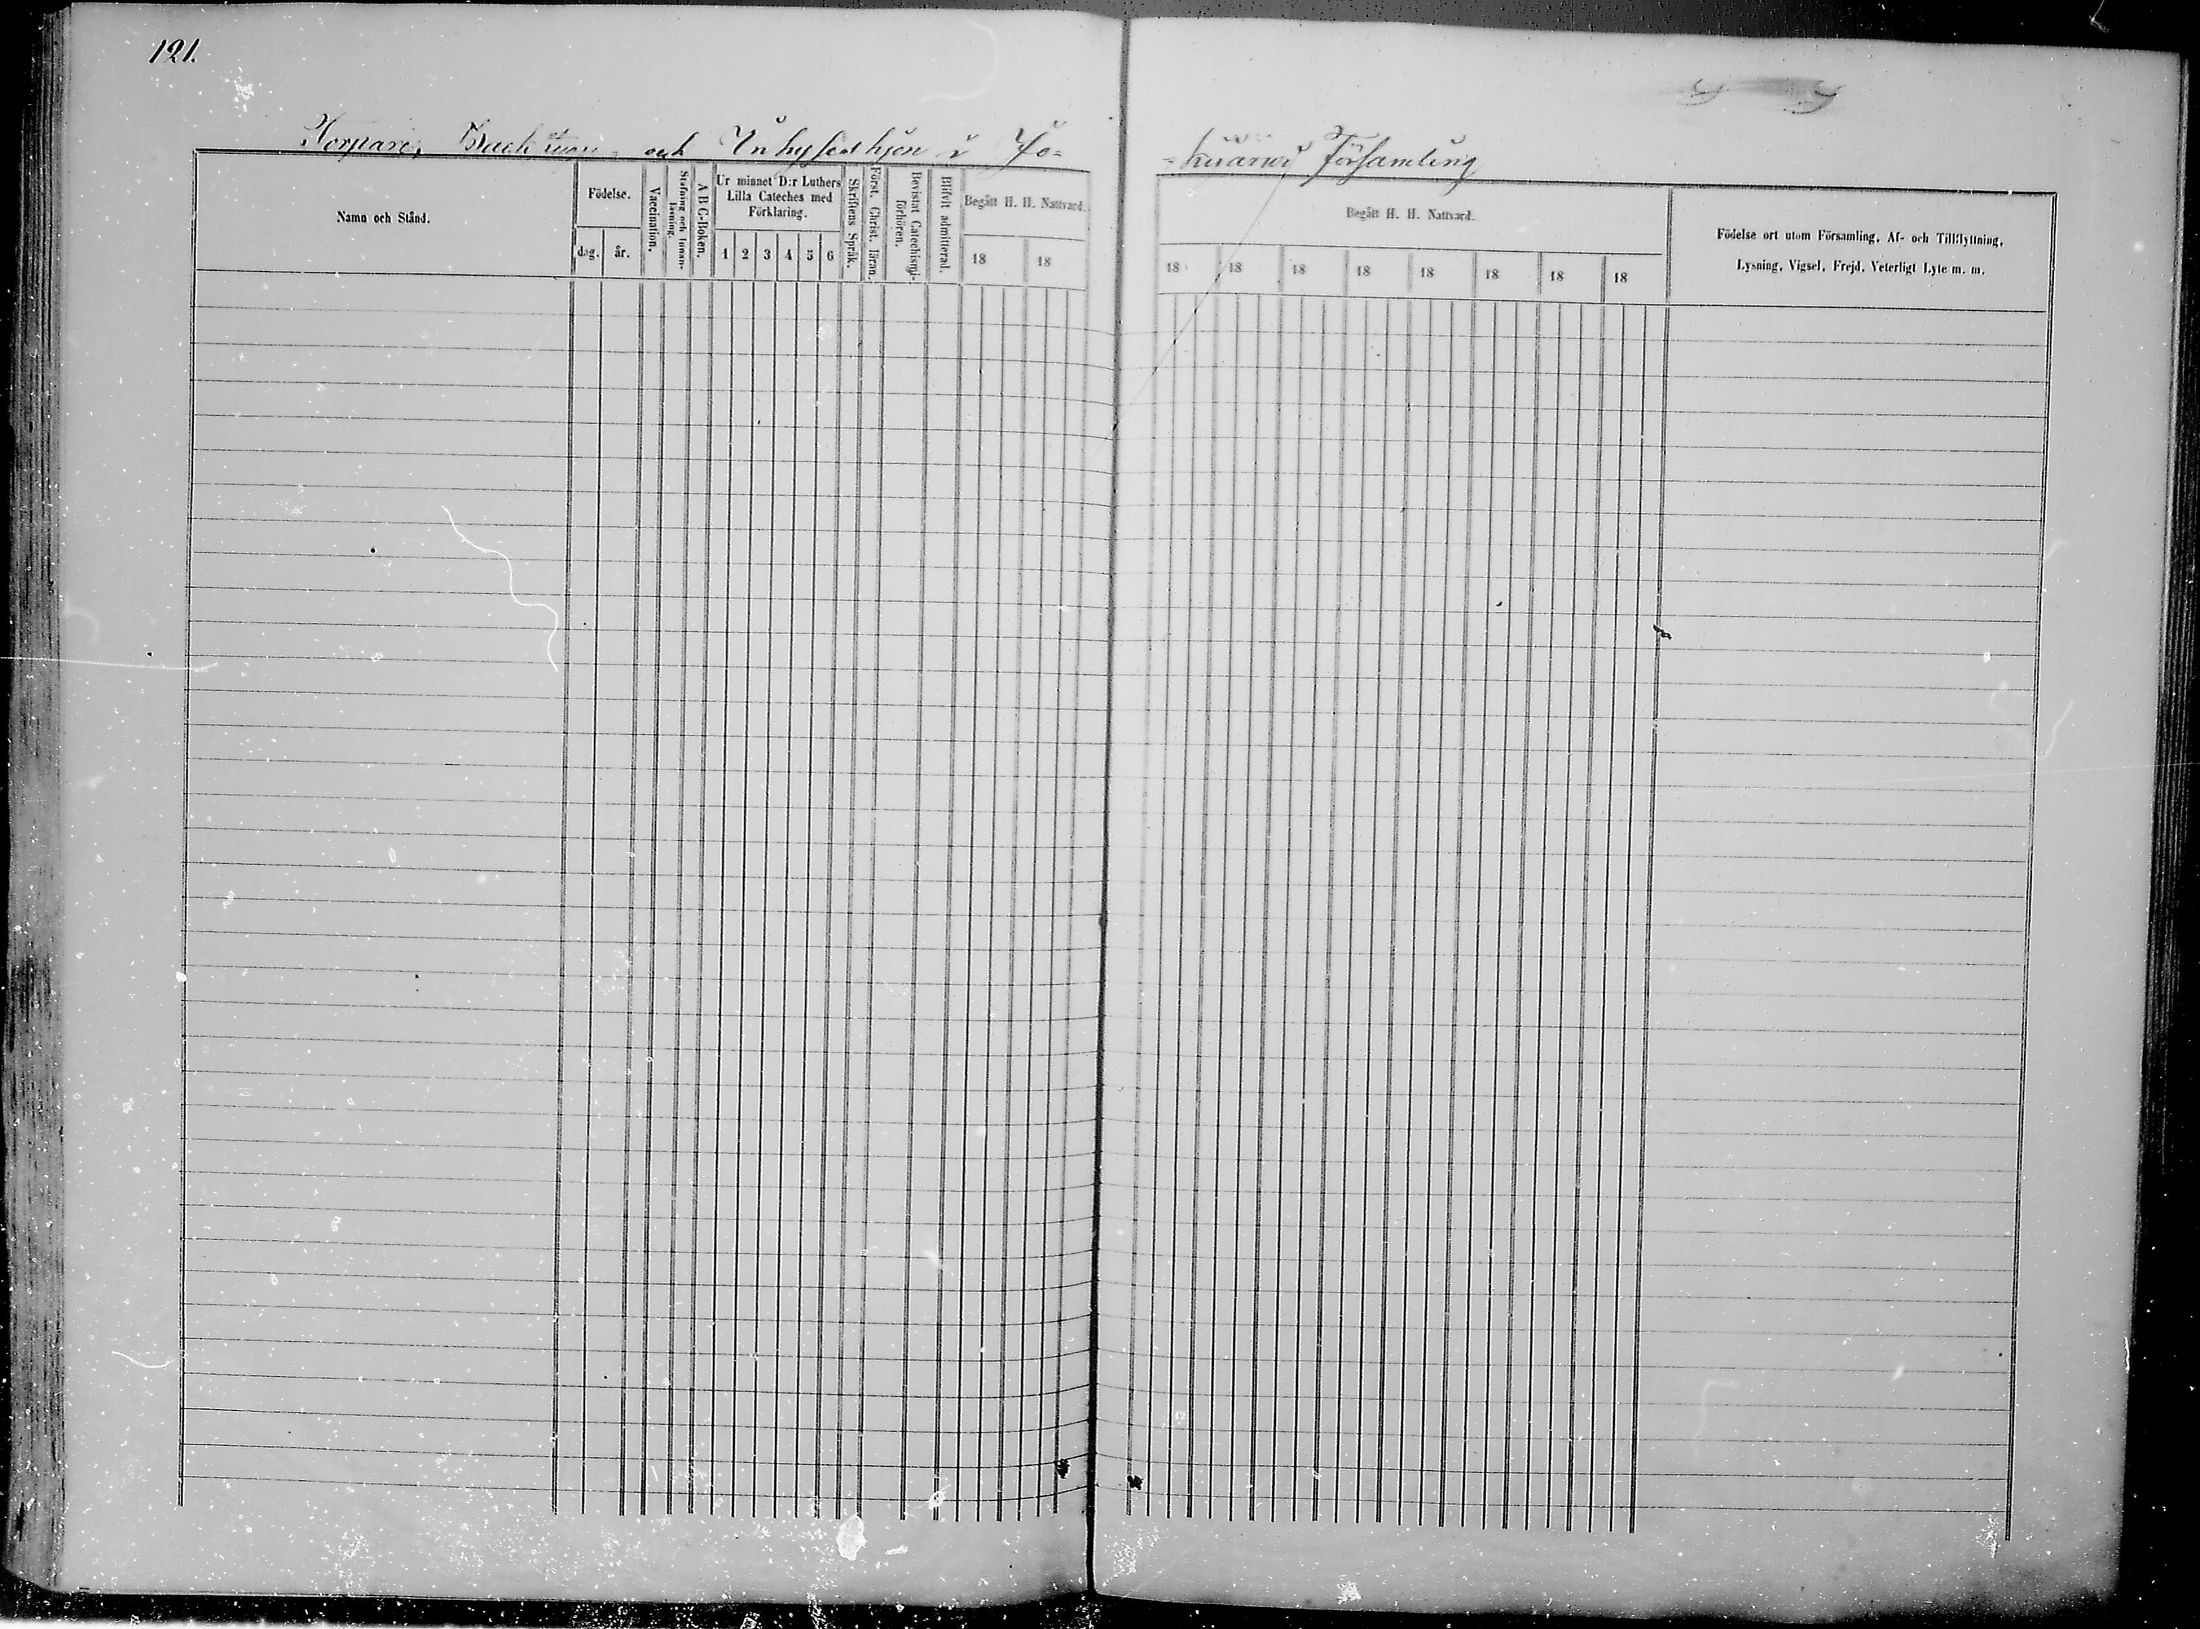 121.
Torpare, Backstugu- och Inhyseshjon i Jo-
-kuarni Församling
Namn och Stånd.
Födelse.
dag. år.
Vaccination.
Stafning och Innan-
läsning.
A B C-Boken.
Ur minnet D:r Luthers
Lilla Cateches med
Förklaring.
1 2 3 4 5 6
Skriftens Språk.
Först. Christ. läran.
Bevistat Catechismi-
förhören.
Blifvit admitterad.
Begått H. H. Nattvard.
18 18
Begått H. H. Nattvard.
18 18 18 18 18 18 18 18
Födelse ort utom Församling, Af- och Tillflyttning,
Lysning, Vigsel, Frejd, Veterligt Lyte m. m.